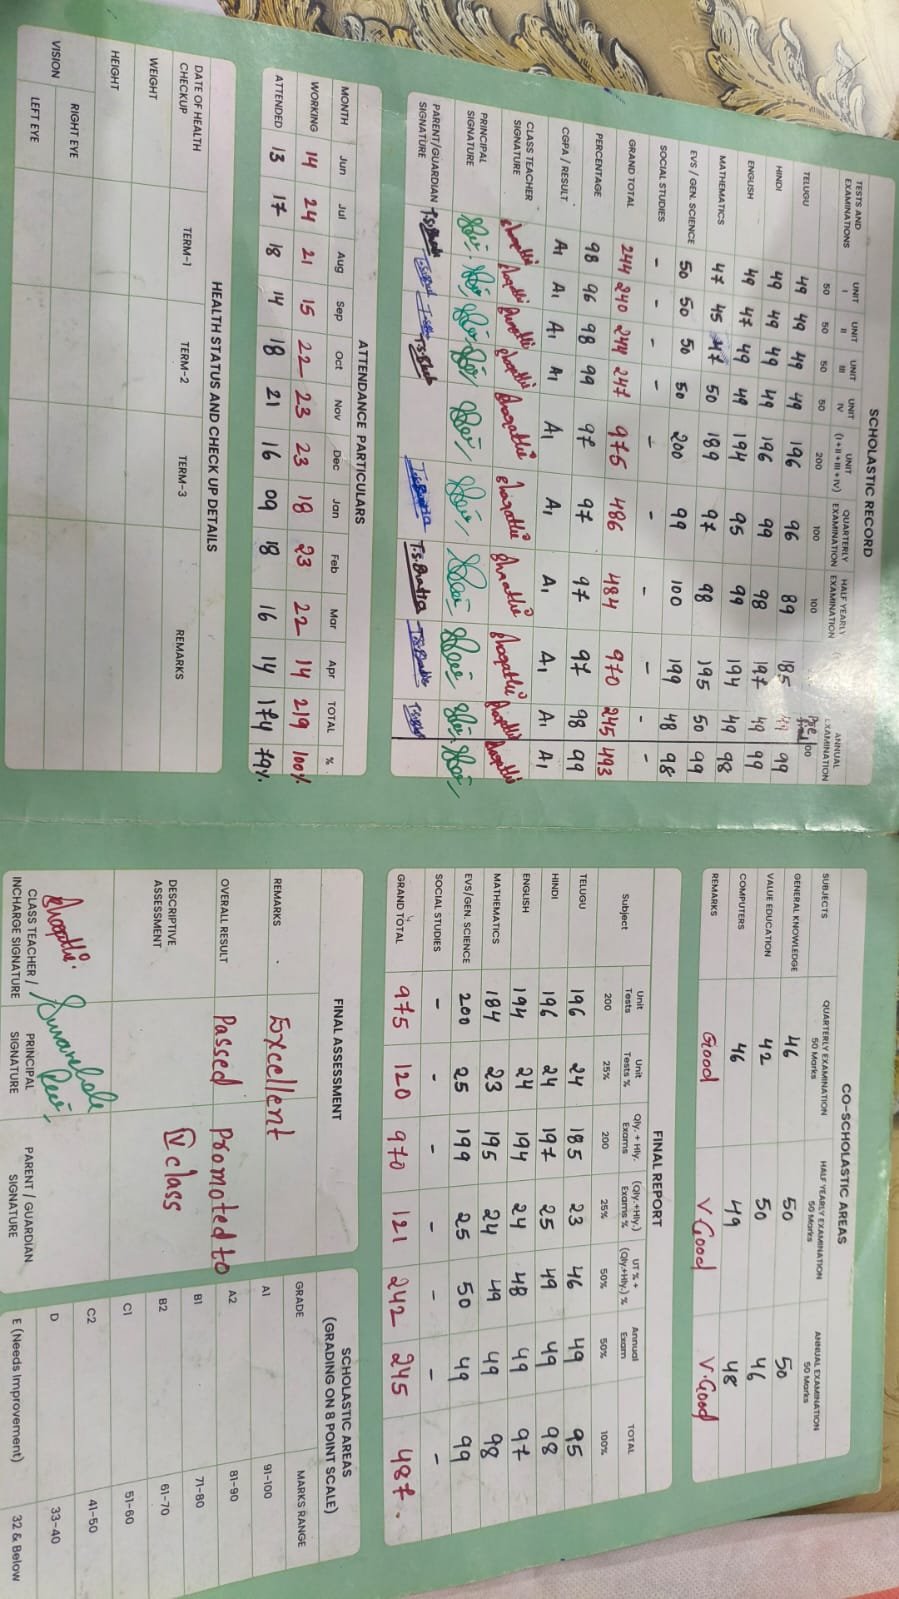 SCHOLASTIC RECORD
TESTS AND EXAMINATIONS UNIT I 50 UNIT II 50 UNIT III 50 UNIT IV 50 UNIT (I+II+III+IV) 200 QUARTERLY EXAMINATION 100 HALF YEARLY EXAMINATION 100 ANNUAL EXAMINATION 100
TELUGU 49 49 49 49 196 96 89 185 49 99
HINDI 49 49 49 49 196 99 98 197 49 99
ENGLISH 49 47 49 49 194 95 99 194 49 98
MATHEMATICS 47 45 47 50 189 97 98 195 50 99
EVS / GEN. SCIENCE 50 50 50 50 200 99 100 199 48 98
SOCIAL STUDIES - - - - - - - - - -
GRAND TOTAL 244 240 244 247 975 486 484 970 245 493
PERCENTAGE 98 96 98 99 97 97 97 97 98 99
CGPA / RESULT A1 A1 A1 A1 A1 A1 A1 A1 A1 A1
CLASS TEACHER SIGNATURE
PRINCIPAL SIGNATURE
PARENT/GUARDIAN SIGNATURE T.S.Bhatia
ATTENDANCE PARTICULARS
MONTH Jun Jul Aug Sep Oct Nov Dec Jan Feb Mar Apr TOTAL %
WORKING 14 24 21 15 22 23 23 18 23 22 14 219 100%
ATTENDED 13 17 18 14 18 21 16 09 18 16 14 174 79%
HEALTH STATUS AND CHECK UP DETAILS
DATE OF HEALTH CHECKUP TERM-1 TERM-2 TERM-3 REMARKS
WEIGHT
HEIGHT
VISION RIGHT EYE
LEFT EYE
CO-SCHOLASTIC AREAS
SUBJECTS QUARTERLY EXAMINATION 50 Marks HALF YEARLY EXAMINATION 50 Marks ANNUAL EXAMINATION 50 Marks
GENERAL KNOWLEDGE 46 50 50
VALUE EDUCATION 42 50 46
COMPUTERS 46 49 48
REMARKS Good V Good V.Good
FINAL REPORT
Subject Unit Tests 200 Unit Tests % 25% Qly. + Hly. Exams 200 (Qly.+Hly.) Exams % 25% UT % + (Qly.+Hly.) % 50% Annual Exam 50% TOTAL 100%
TELUGU 196 24 185 23 46 49 95
HINDI 196 24 197 25 49 49 98
ENGLISH 194 24 194 24 48 49 97
MATHEMATICS 184 23 195 24 49 49 98
EVS/GEN. SCIENCE 200 25 199 25 50 49 99
SOCIAL STUDIES - - - - - - -
GRAND TOTAL 975 120 970 121 242 245 487.
FINAL ASSESSMENT
REMARKS Excellent
OVERALL RESULT Passed Promoted to
IV class
DESCRIPTIVE ASSESSMENT
CLASS TEACHER / INCHARGE SIGNATURE PRINCIPAL SIGNATURE PARENT / GUARDIAN SIGNATURE
SCHOLASTIC AREAS
(GRADING ON 8 POINT SCALE)
GRADE MARKS RANGE
A1 91-100
A2 81-90
B1 71-80
B2 61-70
C1 51-60
C2 41-50
D 33-40
E (Needs Improvement) 32 & Below